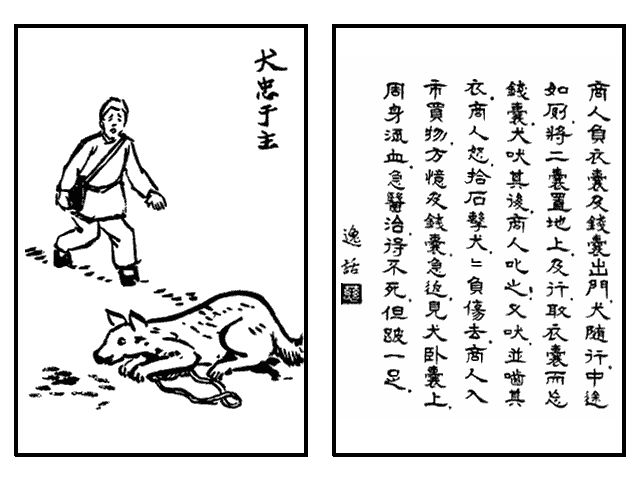 犬忠于主
商人負衣囊及錢囊出門.犬随行.中途
如厕.將二囊置地上.及行.取衣囊而忘
錢囊.犬吠其後.商人叱之.又吠.並嚙其
衣.商人怒.拾石擊犬.犬負傷去.商人入
市買物.方憶及錢囊.急返.見犬卧囊上.
周身流血.急醫治.得不死.但跛一足.
逸話